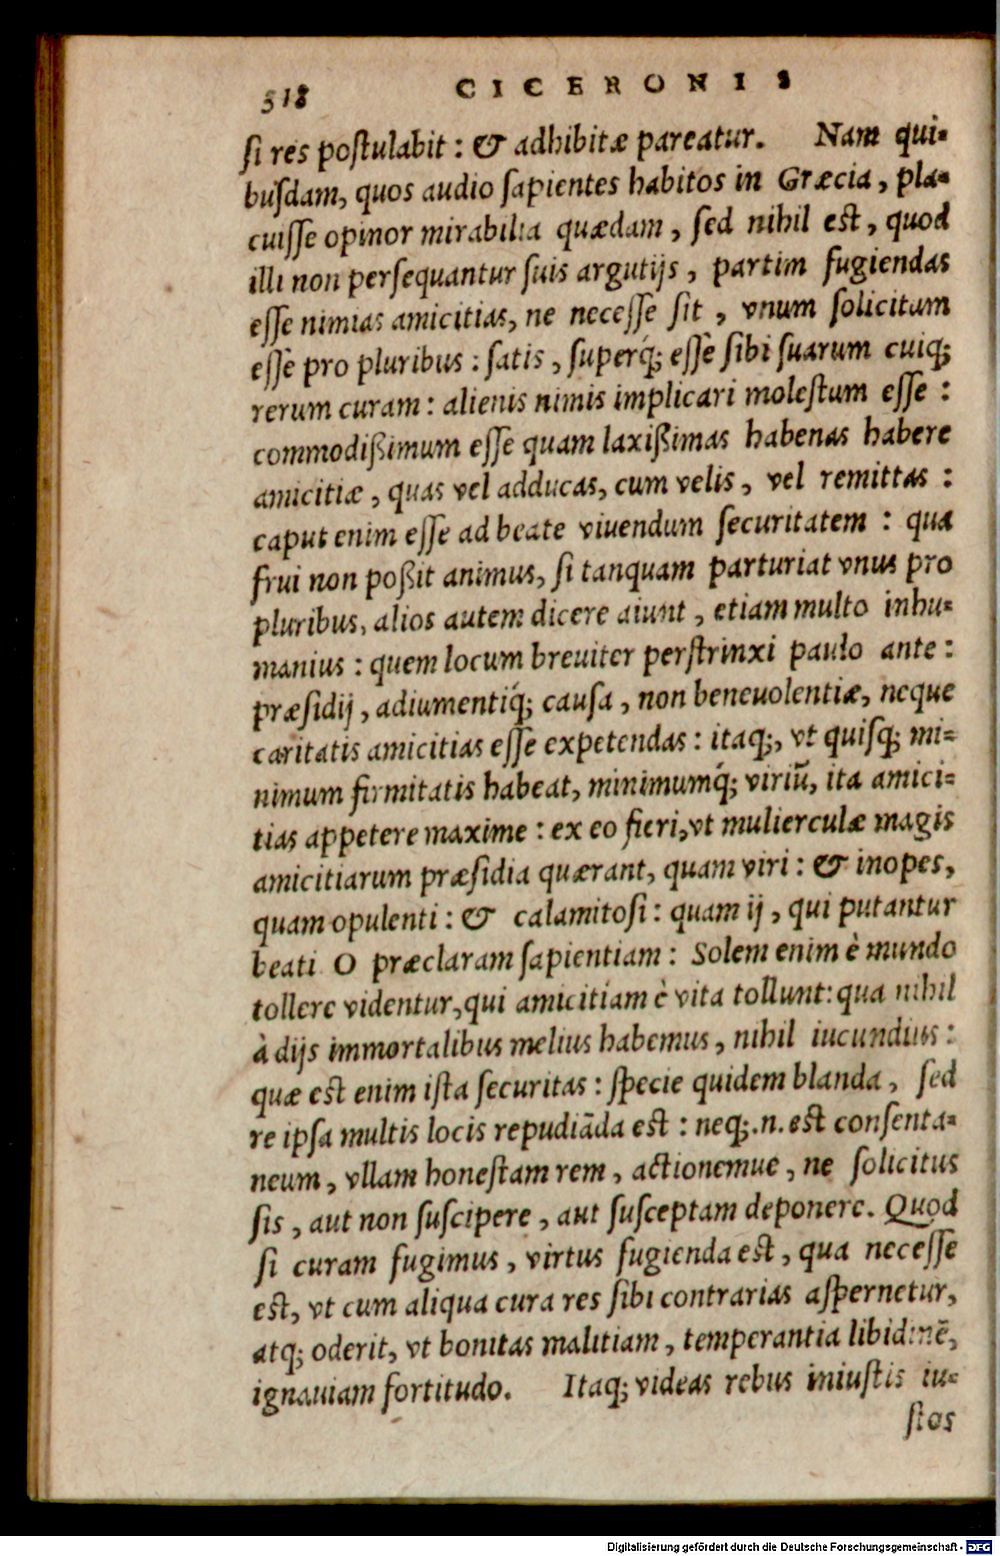 318 CICERONIS
si res postulabit : & adhibitæ pareatur. Nam qui-
busdam, quos audio sapientes habitos in Græcia, pla-
cuisse opinor mirabilia quædam, sed nihil est, quod
illi non persequantur suis argutijs, partim fugiendas
esse nimias amicitias, ne necesse sit, vnum solicitum
esse pro pluribus : satis, superq́; esse sibi suarum cuiq;
rerum curam : alienis nimis implicari molestum esse :
commodißimum esse quam laxißimas habenas habere
amicitiæ, quas vel adducas, cum velis, vel remittas :
caput enim esse ad beate viuendum securitatem : qua
frui non poßit animus, si tanquam parturiat vnus pro
pluribus, alios autem dicere aiunt, etiam multo inhu-
manius : quem locum breuiter perstrinxi paulo ante :
præsidij, adiumentiq́; causa, non beneuolentiæ, neque
caritatis amicitias esse expetendas : itaq;, vt quisq; mi-
nimum firmitatis habeat, minimumq́; viriū, ita amici-
tias appetere maxime : ex eo fieri, vt mulierculæ magis
amicitiarum præsidia quærant, quam viri : & inopes,
quam opulenti : & calamitosi : quam ij, qui putantur
beati O præclaram sapientiam : Solem enim è mundo
tollere videntur, qui amicitiam è vita tollunt: qua nihil
à dijs immortalibus melius habemus, nihil iucundius :
quæ est enim ista securitas : specie quidem blanda, sed
re ipsa multis locis repudiāda est : neq;.n. est consenta-
neum, vllam honestam rem, actionemue, ne solicitus
sis, aut non suscipere, aut susceptam deponere. Quod
si curam fugimus, virtus fugienda est, qua necesse
est, vt cum aliqua cura res sibi contrarias aspernetur,
atq; oderit, vt bonitas malitiam, temperantia libidinē,
ignauiam fortitudo. Itaq; videas rebus iniustis iu-
stos
Digitalisierung gefördert durch die Deutsche Forschungsgemeinschaft - DFG